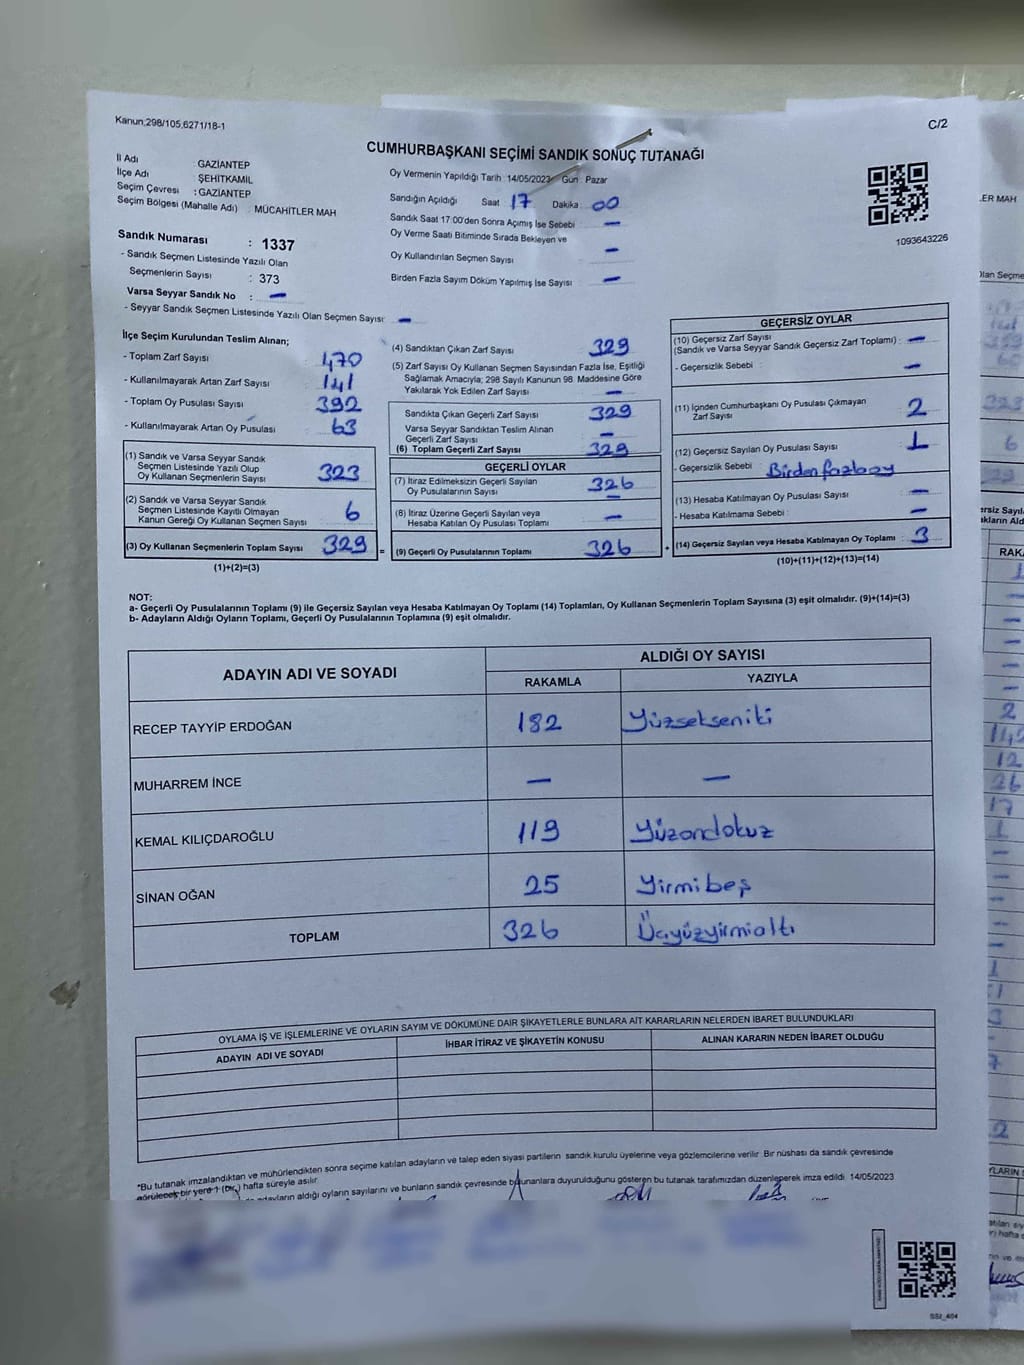 Kanun;298/105,6271/18-1
C/2
CUMHURBAŞKANI SEÇİMİ SANDIK SONUÇ TUTANAĞI
İl Adı : GAZİANTEP
İlçe Adı ŞEHİTKAMİL
Seçim Çevresi : GAZİANTEP
Seçim Bölgesi (Mahalle Adı) : MÜCAHİTLER MAH
Sandık Numarası : 1337
- Sandık Seçmen Listesinde Yazılı Olan
Seçmenlerin Sayısı : 373
Varsa Seyyar Sandık No : —
- Seyyar Sandık Seçmen Listesinde Yazılı Olan Seçmen Sayısı: —
Oy Vermenin Yapıldığı Tarih :14/05/2023 Gün : Pazar
Sandığın Açıldığı Saat 17 Dakika : 00
Sandık Saat 17:00'den Sonra Açımış İse Sebebi —
Oy Verme Saati Bitiminde Sırada Bekleyen ve
Oy Kullandırılan Seçmen Sayısı —
Birden Fazla Sayım Döküm Yapılmış İse Sayısı : —
1093643226
İlçe Seçim Kurulundan Teslim Alınan;
- Toplam Zarf Sayısı : 470
- Kullanılmayarak Artan Zarf Sayısı : 141
- Toplam Oy Pusulası Sayısı : 392
- Kullanılmayarak Artan Oy Pusulası : 63
(1) Sandık ve Varsa Seyyar Sandık
Seçmen Listesinde Yazılı Olup
Oy Kullanan Seçmenlerin Sayısı : 323
(2) Sandık ve Varsa Seyyar Sandık
Seçmen Listesinde Kayıtlı Olmayan
Kanun Gereği Oy Kullanan Seçmen Sayısı : 6
(3) Oy Kullanan Seçmenlerin Toplam Sayısı : 329 =
(1)+(2)=(3)
(4) Sandıktan Çıkan Zarf Sayısı : 329
(5) Zarf Sayısı Oy Kullanan Seçmen Sayısından Fazla İse, Eşitliği
Sağlamak Amacıyla; 298 Sayılı Kanunun 98. Maddesine Göre
Yakılarak Yok Edilen Zarf Sayısı : —
Sandıkta Çıkan Geçerli Zarf Sayısı : 329
Varsa Seyyar Sandıktan Teslim Alınan
Geçerli Zarf Sayısı : —
(6) Toplam Geçerli Zarf Sayısı : 329
GEÇERLİ OYLAR
(7) İtiraz Edilmeksizin Geçerli Sayılan
Oy Pusulalarının Sayısı : 326
(8) İtiraz Üzerine Geçerli Sayılan veya
Hesaba Katılan Oy Pusulası Toplamı : —
(9) Geçerli Oy Pusulalarının Toplamı : 326 +
GEÇERSİZ OYLAR
(10) Geçersiz Zarf Sayısı
(Sandık ve Varsa Seyyar Sandık Geçersiz Zarf Toplamı) : —
- Geçersizlik Sebebi : —
(11) İçinden Cumhurbaşkanı Oy Pusulası Çıkmayan
Zarf Sayısı : 2
(12) Geçersiz Sayılan Oy Pusulası Sayısı : 1
- Geçersizlik Sebebi : Birden fazla oy
(13) Hesaba Katılmayan Oy Pusulası Sayısı : —
- Hesaba Katılmama Sebebi : —
(14) Geçersiz Sayılan veya Hesaba Katılmayan Oy Toplamı : 3
(10)+(11)+(12)+(13)=(14)
NOT:
a- Geçerli Oy Pusulalarının Toplamı (9) ile Geçersiz Sayılan veya Hesaba Katılmayan Oy Toplamı (14) Toplamları, Oy Kullanan Seçmenlerin Toplam Sayısına (3) eşit olmalıdır. (9)+(14)=(3)
b- Adayların Aldığı Oyların Toplamı, Geçerli Oy Pusulalarının Toplamına (9) eşit olmalıdır.
ADAYIN ADI VE SOYADI ALDIĞI OY SAYISI
RAKAMLA YAZIYLA
RECEP TAYYİP ERDOĞAN 182 Yüzsekseniki
MUHARREM İNCE — —
KEMAL KILIÇDAROĞLU 119 Yüzondokuz
SİNAN OĞAN 25 Yirmibeş
TOPLAM 326 Üçyüzyirmialtı
OYLAMA İŞ VE İŞLEMLERİNE VE OYLARIN SAYIM VE DÖKÜMÜNE DAİR ŞİKAYETLERLE BUNLARA AİT KARARLARIN NELERDEN İBARET BULUNDUKLARI
ADAYIN ADI VE SOYADI İHBAR İTİRAZ VE ŞİKAYETİN KONUSU ALINAN KARARIN NEDEN İBARET OLDUĞU
*Bu tutanak imzalandıktan ve mühürlendikten sonra seçime katılan adayların ve talep eden siyasi partilerin sandık kurulu üyelerine veya gözlemcilerine verilir Bir nüshası da sandık çevresinde
görülecek bir yere 1 (bir) hafta süreyle asılır
adayların aldığı oyların sayılarını ve bunların sandık çevresinde bulunanlara duyurulduğunu gösteren bu tutanak tarafımızdan düzenlenerek imza edildi. 14/05/2023